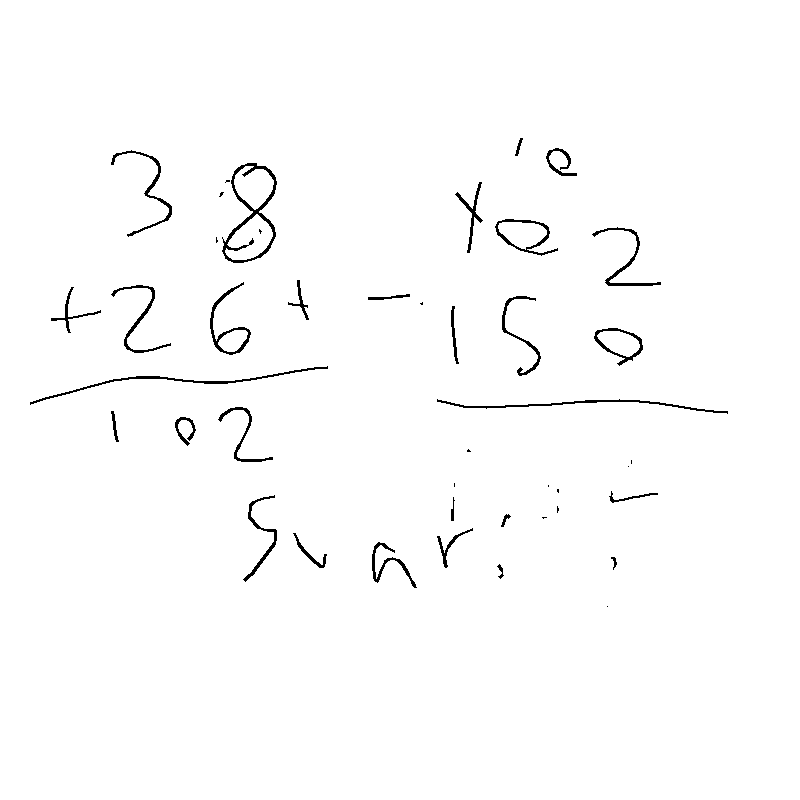 38
+ 26 +
102
10
102
- 150
Svar: